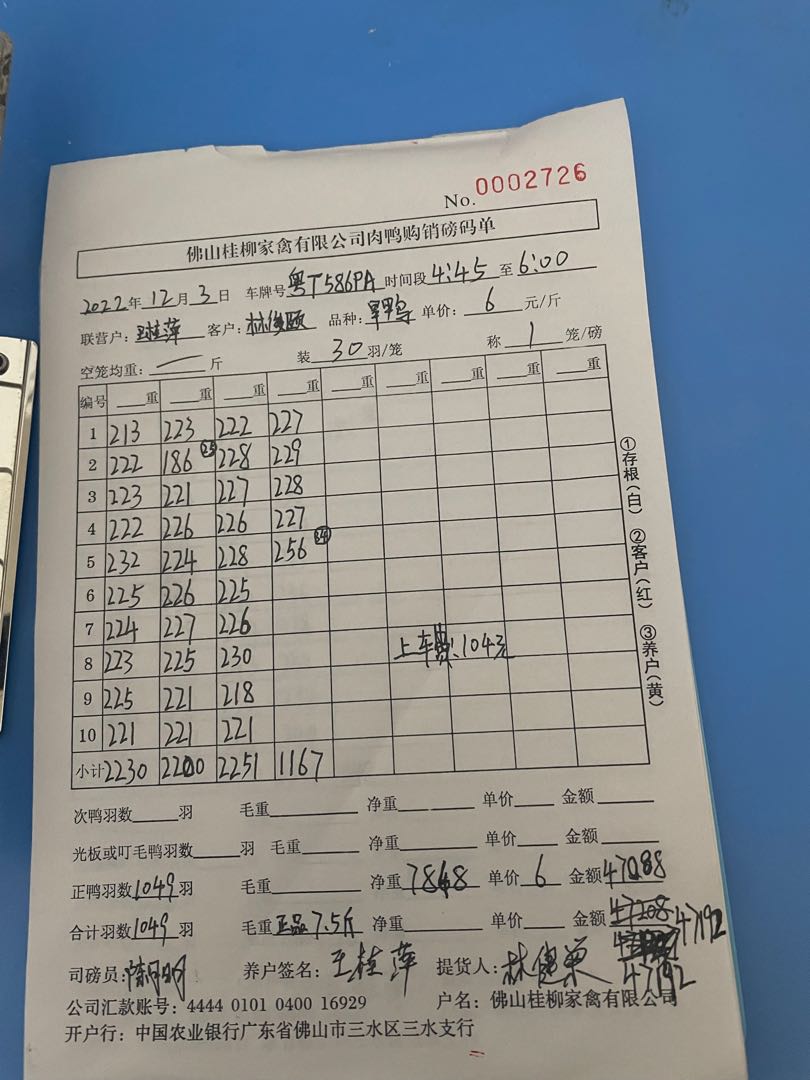 No. 0002726
佛山桂柳家禽有限公司肉鸭购销磅码单
2022年12月3日 车牌号粤T586PA时间段4:45至6:00
联营户:王桂萍 客户:林俊颐 品种: 单价:6元/斤
空笼均重: 斤 装30羽/笼 称1笼/磅
编号 重 重 重 重 重 重 重 重 重
1 213 223 222 227
2 222 186 ㉕ 228 229
3 223 221 227 228
4 222 226 226 227
5 232 224 228 256 ㉞
6 225 226 225
7 224 227 226
8 223 225 230 上车费:104元
9 225 221 218
10 221 221 221
小计 2230 2200 2251 1167
①存根(白) ②客户(红) ③养户(黄)
次鸭羽数 羽 毛重 净重 单价 金额
光板或叮毛鸭羽数 羽 毛重 净重 单价 金额
正鸭羽数1049羽 毛重 净重7848 单价6 金额47088
合计羽数1049羽 毛重正品7.5斤 净重 单价 金额47208 47192
47192
司磅员: 养户签名:王桂萍 提货人:
公司汇款账号:4444 0101 0400 16929 户名:佛山桂柳家禽有限公司
开户行:中国农业银行广东省佛山市三水区三水支行